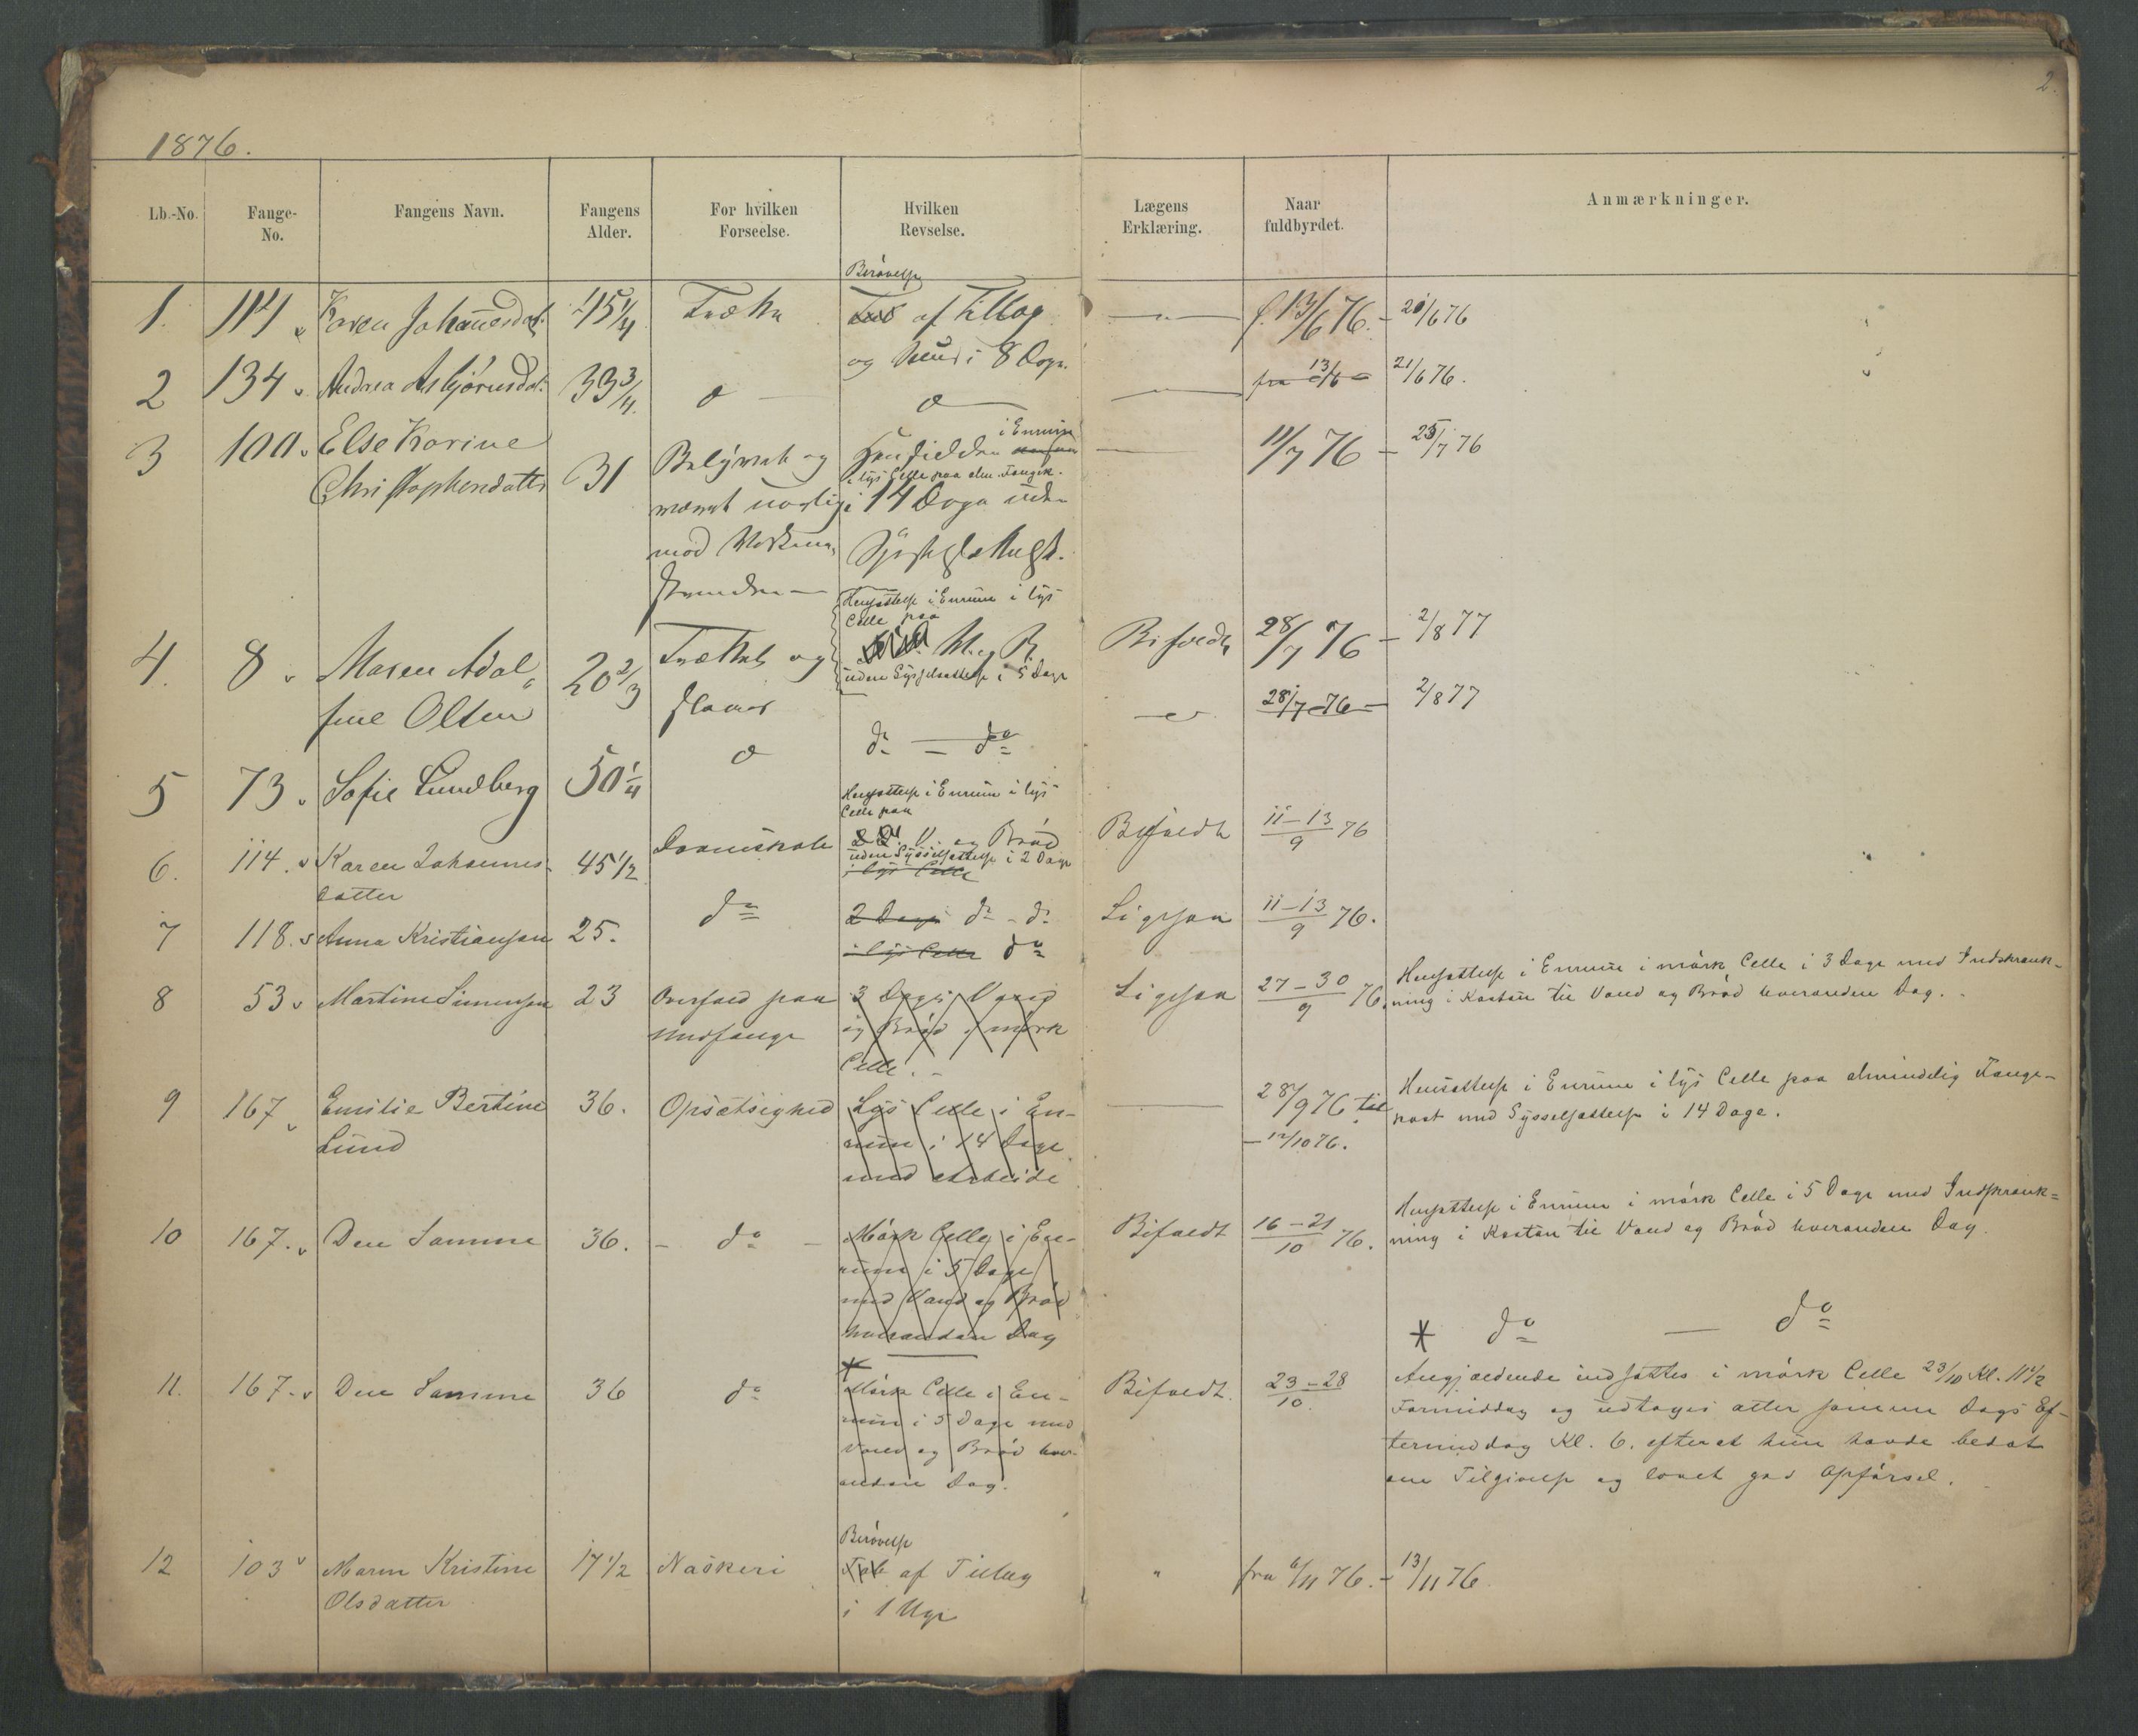 2.
1876.
Lb.-No. Fange-No. Fangens Navn. Fangens Alder. For hvilken Forseelse. Hvilken Revselse. Lægens Erklæring. Naar fuldbyrdet. Anmærkninger.
Berøvelse
1. 114 Karen Johannesdat. 45 1/4 Trætte af Tillæg f. 13/6 76. - 20/6 76
og i 8 Døgn.
2 134 Andrea Asbjørnsdat. 33 3/4 fra 13/6 - 21/6 76.
3 100. Else Karine i Enrum 11/7 76 - 25/7 76
Christophersdatter 31 og i lys Celle paa alm. Fangek.
i 14 Døgn uden
mod Sysselsættelse.
Hensættelse i Enrum i lys
Celle paa
4. 8 Maren Adol- 20 2/3 og V. og B. Bifaldt 28/7 76 - 2/8 77
fine Olsen uden Sysselsættelse i 5 Dage
5 73 Sofie Lundberg 50 1/4 do - do 28/7 76 - 2/8 77
Hensættelse i Enrum i lys
Celle paa
6. 114. Karen Johannes- 45 1/2 V. og Brød Bifaldt 11-13/9 76
datter uden Sysselsættelse i 2 Dage
i lys Celle
7 118. Anna Kristiansen 25. do 2 Dage do - do Ligesaa 11-13/9 76.
i lys Celle do
8 53 Martine Simensen 23 Overfald paa 3 Dage Vand Ligesaa 27-30/9 76. Hensættelse i Enrum i mörk Celle i 3 Dage med Indskrænk-
Medfange og Bröd i mörk ning i Kosten til Vand og Bröd hveranden Dag.
Celle.
9 167 Emilie Bertine 36. Opsætsighed Lys Celle i En- 28/9 76 til Hensættelse i Enrum i lys Celle paa almindelig Fange-
Lund rum i 14 Dage - 12/10 76. kost med Sysselsættelse i 14 Dage.
med Arbeide
10 167. Den Samme 36. - do - Mörk Celle i En- Bifaldt 16-21/10 76. Hensættelse i Enrum i mörk Celle i 5 Dage med Indskrænk=
rum i 5 Dage ning i Kosten til Vand og Bröd hverandan Dag.
med Vand og Bröd
hverandan Dag
* do - do
*
11. 167. Den Samme 36 do Mörk Celle i En- Bifaldt. 23-28/10. Angjældende indsattes i mörk Celle 23/10 Kl. 11 1/2
rum i 5 Dage med Formiddag og udtoges atter samme Dags Ef-
Vand og Bröd hver- termiddag Kl. 6. efterat hun havde bedet
anden Dag. om Tilgivelse og lovet god Opförsel.
Berøvelse
12 103 Maren Kristine 17 1/2 Naskeri af Tillæg " fra 6/11 76. - 13/11 76.
Olsdatter i 1 Uge